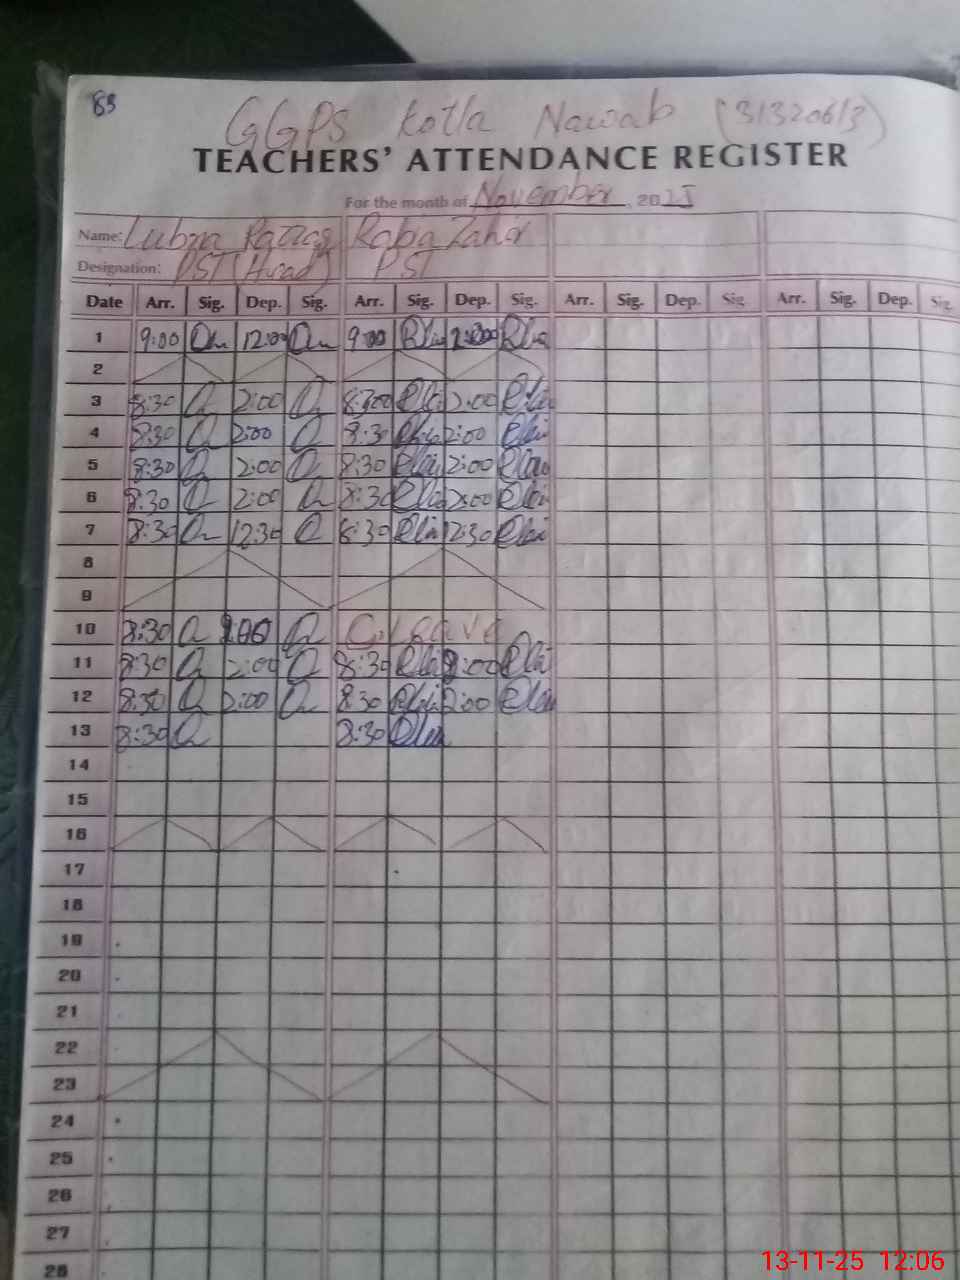 83
GGPS Kotla Nawab (31320613)
TEACHERS' ATTENDANCE REGISTER
For the month of November, 2025
Name: Lubna Razzaq Raba Zahir
Designation: PST (Head) PST
Date Arr. Sig. Dep. Sig. Arr. Sig. Dep. Sig. Arr. Sig. Dep. Sig. Arr. Sig. Dep. Sig.
1 9:00 12:00 9:00
2
3 8:30 2:00 2:00
4 8:30 2:00 8:30 2:00
5 8:30 2:00 8:30 2:00
6 8:30 2:00 8:30 2:00
7 8:30 12:30 8:30 12:30
8
9
10 8:30 C. leave
11 8:30 2:00 8:30
12 8:30 2:00 8:30 2:00
13 8:30 8:30
14
15
16
17
18
19
20
21
22
23
24
25
26
27
28
13-11-25 12:06